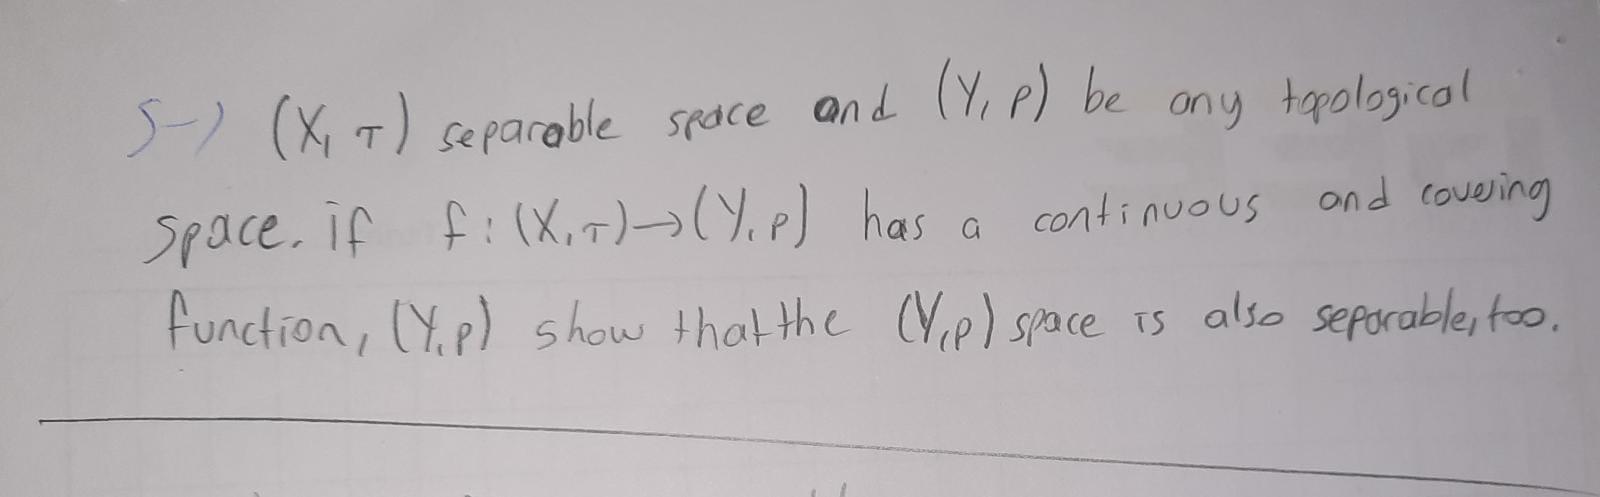 5-) (X, τ) separable space and (Y, p) be any topological
space. if f: (X, τ)→(Y, p) has a continuous and covering
function, (Y, p) show that the (Y, p) space is also separable, too.